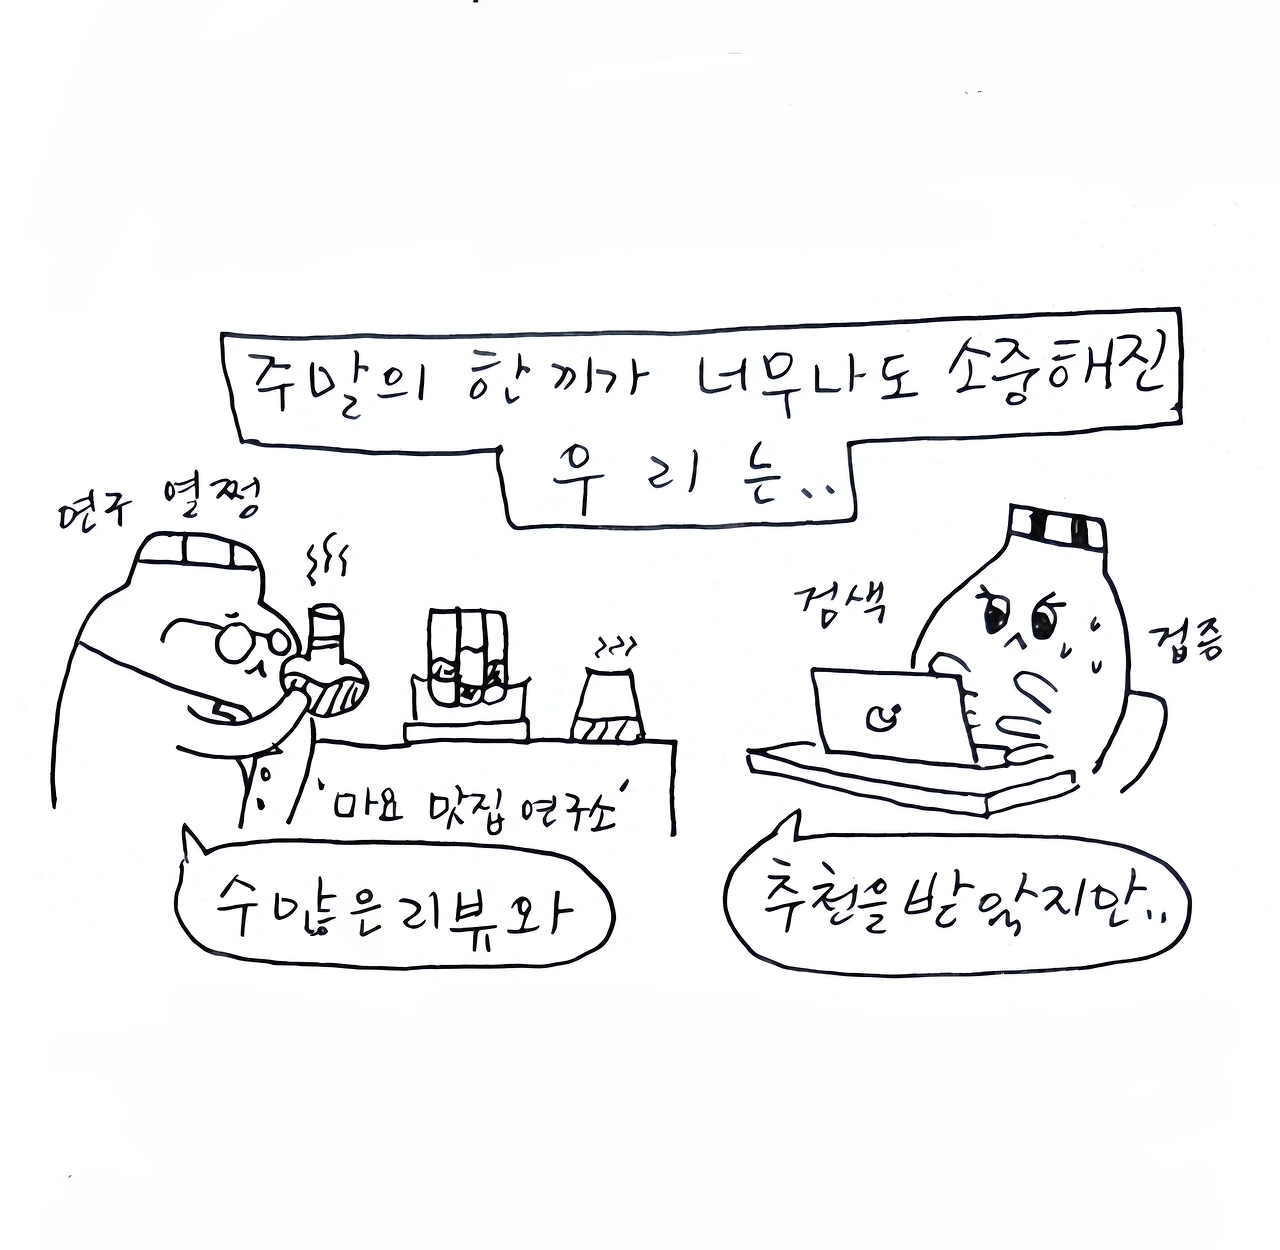 주말의 한끼가 너무나도 소중해진
우리는..
연구 열쩡
검색
검증
'마요 맛집 연구소'
수많은 리뷰와
추천을 받았지만..